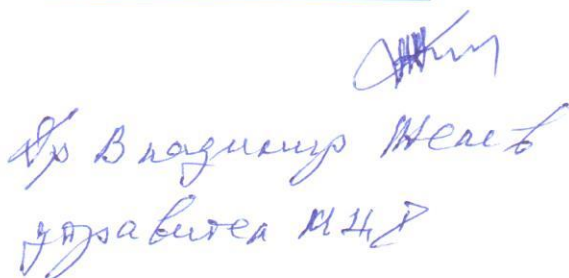 Др Владимир Желев
управител МЦ